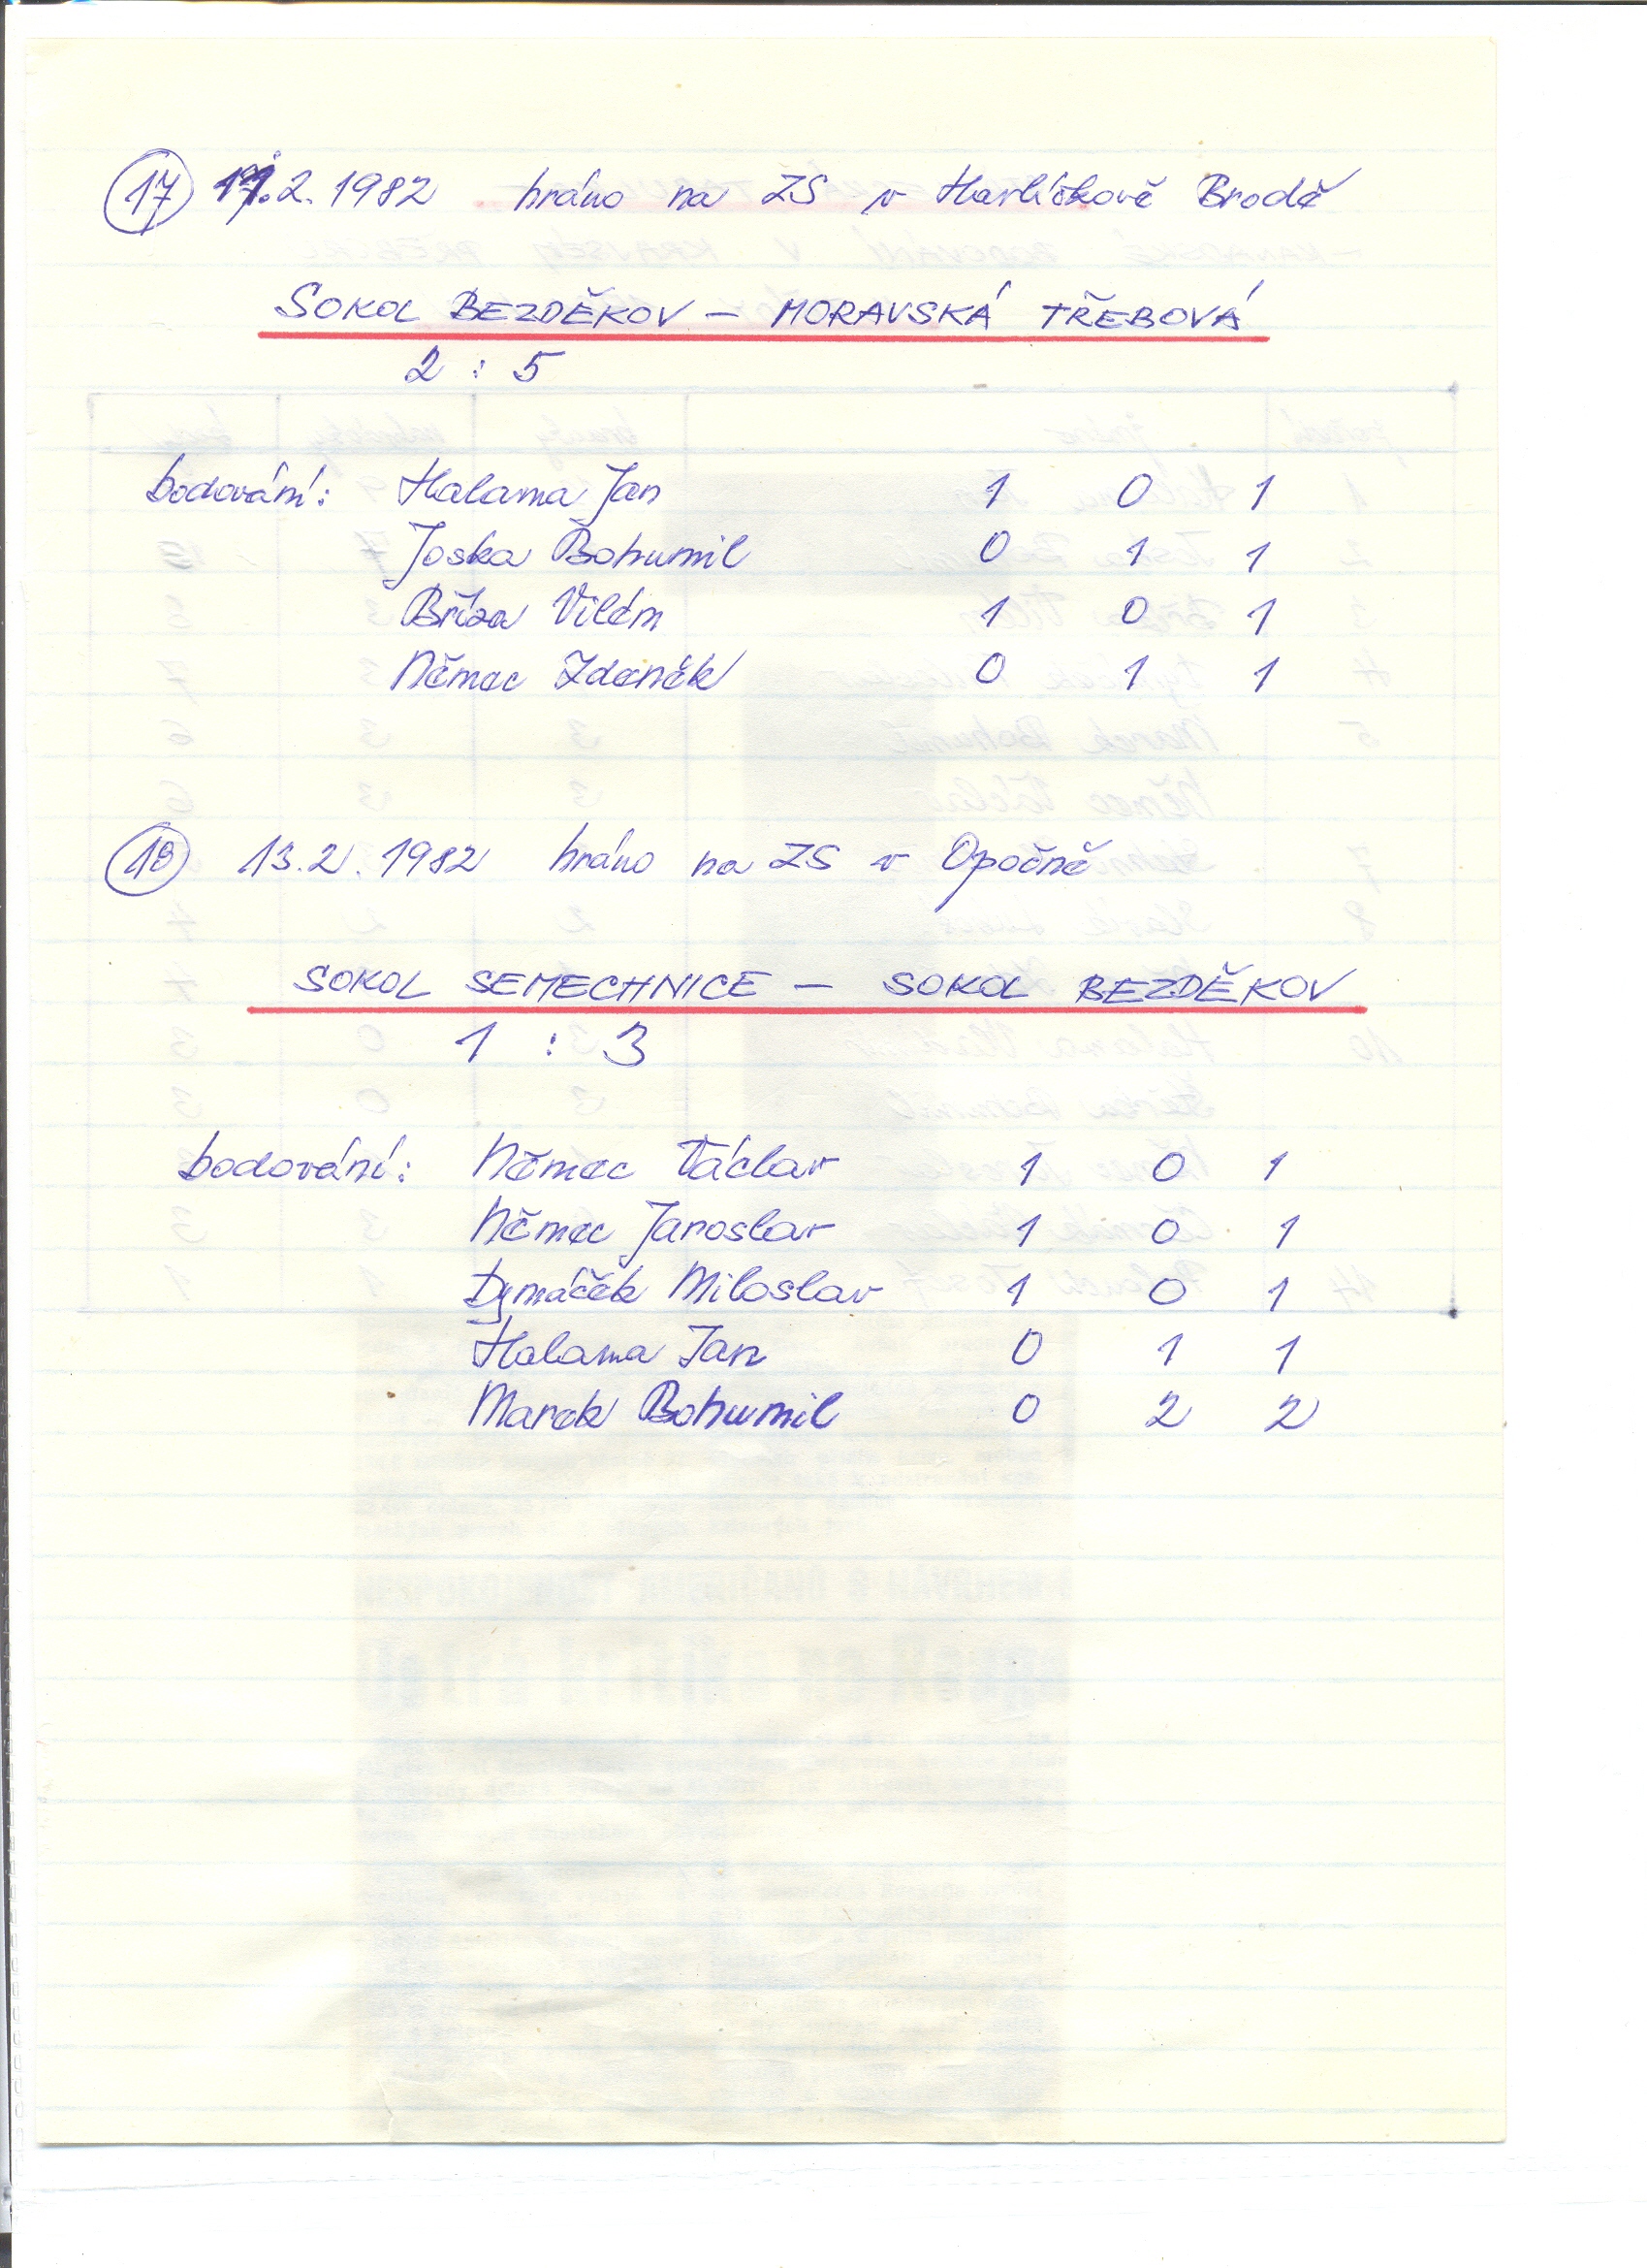 17 11.2.1982 hráno na ZS v Havlíčkově Brodě
SOKOL BEZDĚKOV – MORAVSKÁ TŘEBOVÁ
2 : 5
bodování: Halama Jan 1 0 1
Joska Bohumil 0 1 1
Bříza Vilém 1 0 1
Němec Zdeněk 0 1 1
18 13.2.1982 hráno na ZS v Opočně
SOKOL SEMECHNICE – SOKOL BEZDĚKOV
1 : 3
bodování: Němec Václav 1 0 1
Němec Jaroslav 1 0 1
Dymáček Miloslav 1 0 1
Halama Jan 0 1 1
Marek Bohumil 0 2 2